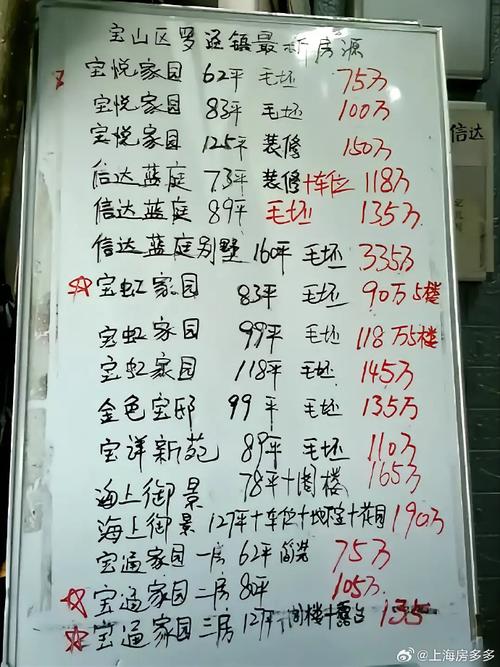 宝山区罗泾镇最新房源
宝悦家园 62平 毛坯 75万
宝悦家园 83平 毛坯 100万
宝悦家园 125平 装修 150万
信达蓝庭 73平 装修+车位 118万
信达蓝庭 89平 毛坯 135万
信达蓝庭别墅 160平 毛坯 335万
宝虹家园 83平 毛坯 90万5楼
宝虹家园 99平 毛坯 118万5楼
宝虹家园 118平 毛坯 145万
金色宝邸 99平 毛坯 135万
宝洋新苑 89平 毛坯 110万
海上御景 78平+阁楼 165万
海上御景 127平+车位+地下室+花园 190万
宝通家园 一房 62平 简装 75万
宝通家园 二房 80平 105万
宝通家园 三房 127平 阁楼+露台 135
信达
@上海房多多